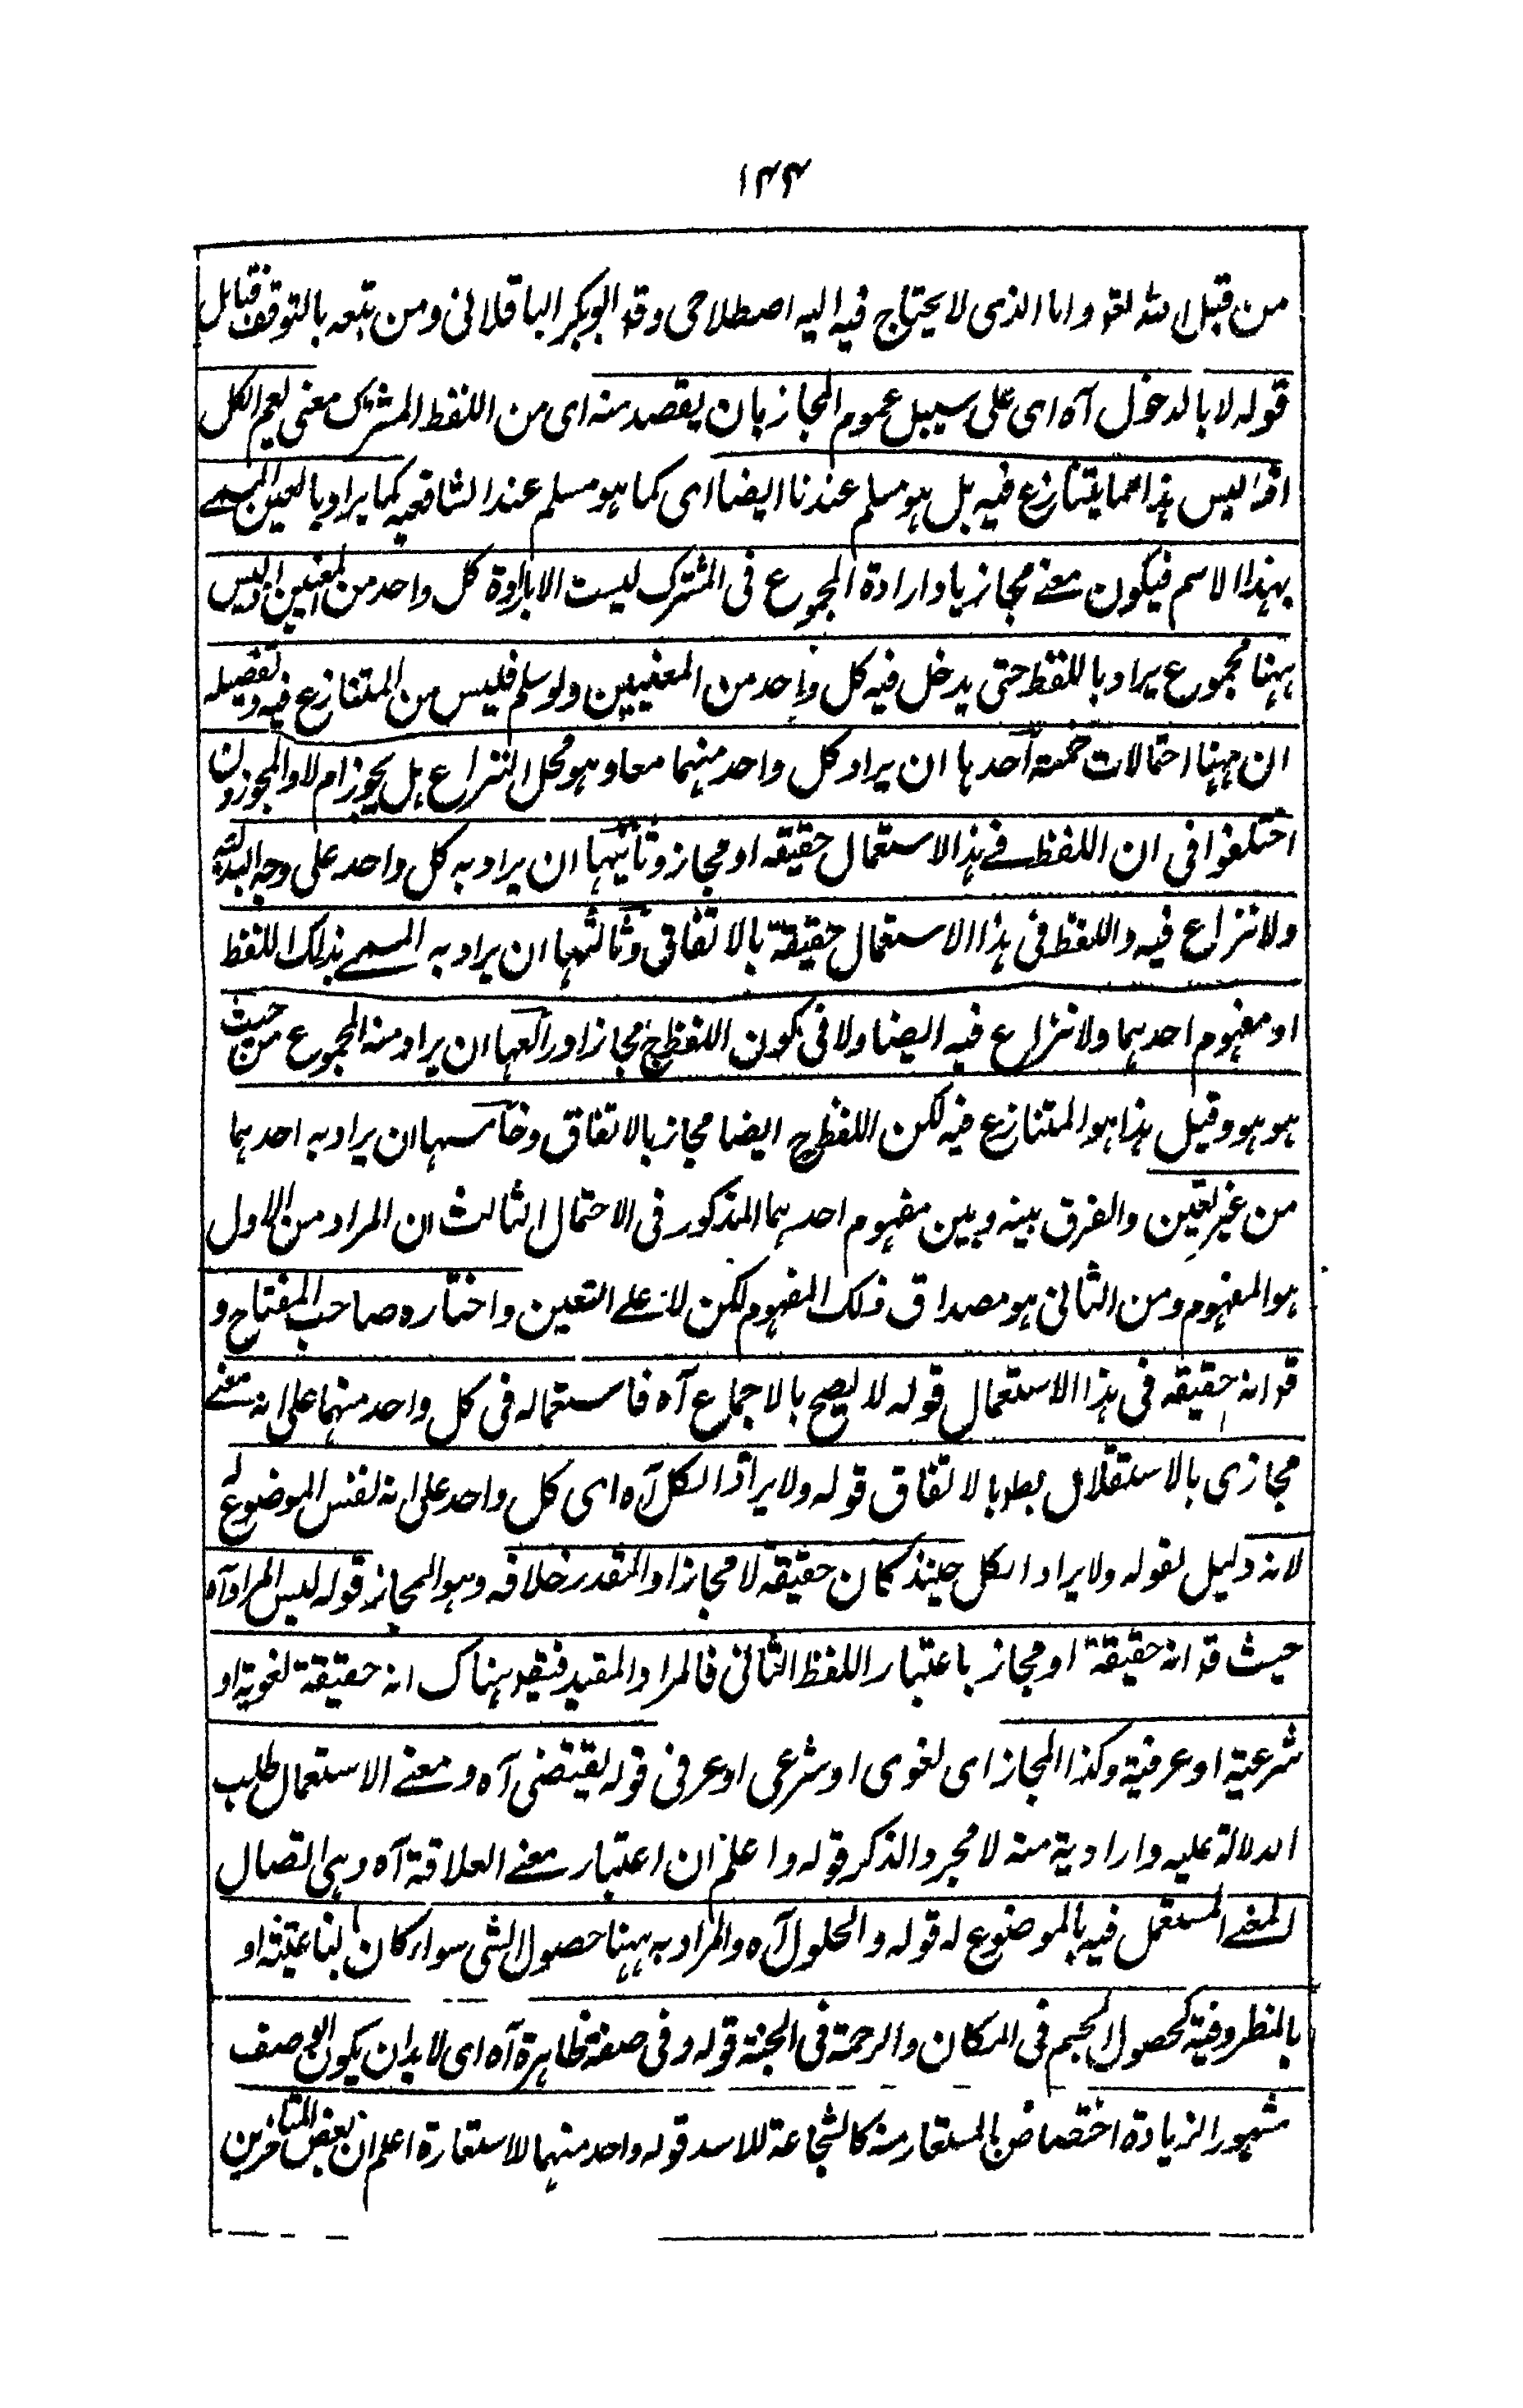 ۱۴۴
من قبل الله لغو واما الذی لا یحتاج فیه الیه اصطلاحی وقد ابوبکر الباقلانی ومن تبعه بالتوقف قابل
قوله لا بالدخول آه ای علی سبیل عموم المجاز بان یقصد منه ای من اللفظ المشترک معنی یعم الکل
اقول لیس هذا مما یتنازع فیه بل هو مسلم عندنا ایضا ای کما هو مسلم عند الشافعیه کما یراد بالعین المسمے
بهذا الاسم فیکون معنے مجازیا وارادة المجموع فی المشترک لیست الا بارادة کل واحد من المعنیین اذ لیس
ههنا مجموع یراد باللفظ حتی یدخل فیه کل واحد من المعنیین ولو سلم فلیس من المتنازع فیه وتفصیله
ان ههنا احتمالات خمسة احدها ان یراد کل واحد منهما معا وهو محل النزاع هل یجوز ام لا والمجوزون
اختلفوا فی ان اللفظ فے هذا الاستعمال حقیقه او مجاز وثانیها ان یراد به کل واحد علی وجه البدلیة
ولا نزاع فیه واللفظ فی هذا الاستعمال حقیقة بالاتفاق وثالثها ان یراد به المسمے بذلک اللفظ
او مفهوم احدهما ولا نزاع فیه ایضا ولا فی کون اللفظ ح مجازا ورابعها ان یراد منه المجموع من حیث
هو هو وقیل هذا هو المتنازع فیه لکن اللفظ ح ایضا مجاز بالاتفاق وخامسها ان یراد به احدهما
من غیر تعین والفرق بینه وبین مفهوم احدهما المذکور فی الاحتمال الثالث ان المراد من الاول
هو المفهوم ومن الثانی هو مصداق ذلک المفهوم لکن لا علے التعین واختاره صاحب المفتاح و
قد انه حقیقه فی هذا الاستعمال قوله لا یصح بالاجماع آه فاستعماله فی کل واحد منهما علی انه معنے
مجازی بالاستقلال بط بالاتفاق قوله ولا یراد الکل آه ای کل واحد علی انه نفس الموضوع له
لانه دلیل لقوله ولا یراد الکل حینئذ کان حقیقة لا مجازا والمقدر خلافه وهو المجاز قوله لیس المراد آه
حیث قد انه حقیقة او مجاز باعتبار اللفظ الثانی فالمراد المقید فیقو هناک انه حقیقة لغویة او
شرعیة او عرفیة وکذا المجاز ای لغوی او شرعی او عرفی قوله یقتضی آه ومعنے الاستعمال طلب
الدلالة علیه وارادیة منه لا مجرد الذکر قوله واعلم ان اعتبار معنے العلاقة آه وهی اتصال
المعنے المستعمل فیه بالموضوع له قوله والحلول آه والمراد به ههنا حصول الشی سواء کان بالناعتیة او
بالمظروفیة کحصول الجسم فی المکان والرحمة فی الجنة قوله وفی صفة ظاهرة آه ای لا بد ان یکون الوصف
مشهورا لزیادة اختصاص بالمستعار منه کالشجاعة للاسد قوله واحد منهما للاستعارة اعلم ان بعض المتاخرین